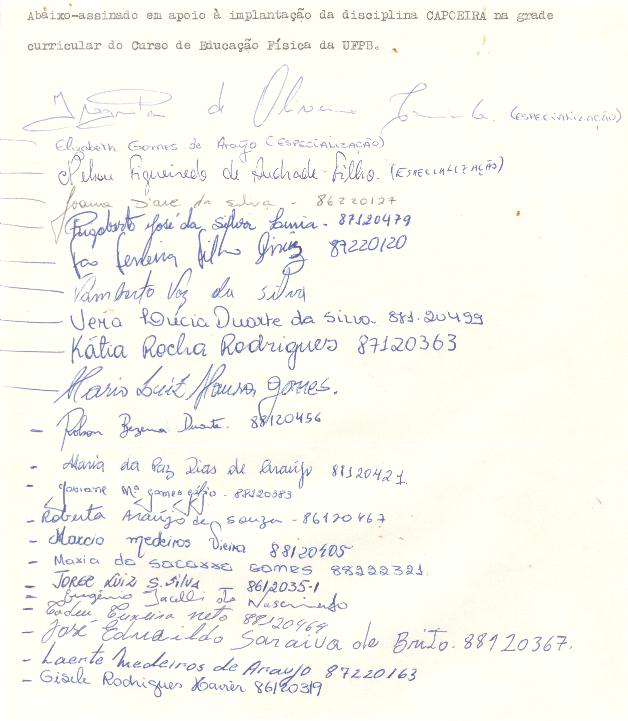 Abaixo-assinado em apoio à implantação da disciplina CAPOEIRA na grade
curricular do Curso de Educação Física da UFPB.
de Oliveira (ESPECIALIZAÇÃO)
Elizabeth Gomes de Araújo (ESPECIALIZAÇÃO)
Nelson Figueiredo de Andrade Filho. (ESPECIALIZAÇÃO)
Joana D'arc da silva - 86220127
Rigoberto José da Silva - 87120479
Ferreira Filho 87220120
Vamberto Vaz da silva
Vera Lúcia Duarte da Silva. 881.20499
Kátia Rocha Rodrigues 87120363
Mario Luiz Gomes.
- Robson Bezerra Duarte. 88120456
- Maria da Paz Dias de Araújo 88120421.
- Josiane Mª gomes - 88120383
- Roberta Araújo de Souza - 86120467
- Marcio medeiros Vieira 88120405
- Maria do Socorro GOMES 88222321.
- JORGE LUIZ S. SILVA - 8612035-1
- Eugênio do Nascimento
- Tadeu Teixeira neto 88120464
- José Edvaildo Saraiva de Brito. 88120367.
- Laerte Medeiros de Araujo 87220163
- Gisele Rodrigues Xavier 86120319